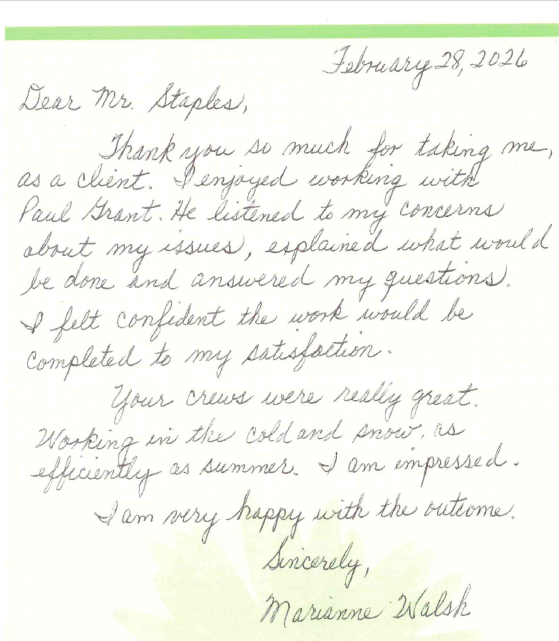 February 28, 2026
Dear Mr. Staples,
Thank you so much for taking me,
as a client. I enjoyed working with
Paul Grant. He listened to my concerns
about my issues, explained what would
be done and answered my questions.
I felt confident the work would be
completed to my satisfaction.
Your crews were really great.
Working in the cold and snow, as
efficiently as summer. I am impressed.
I am very happy with the outcome.
Sincerely,
Marianne Walsh